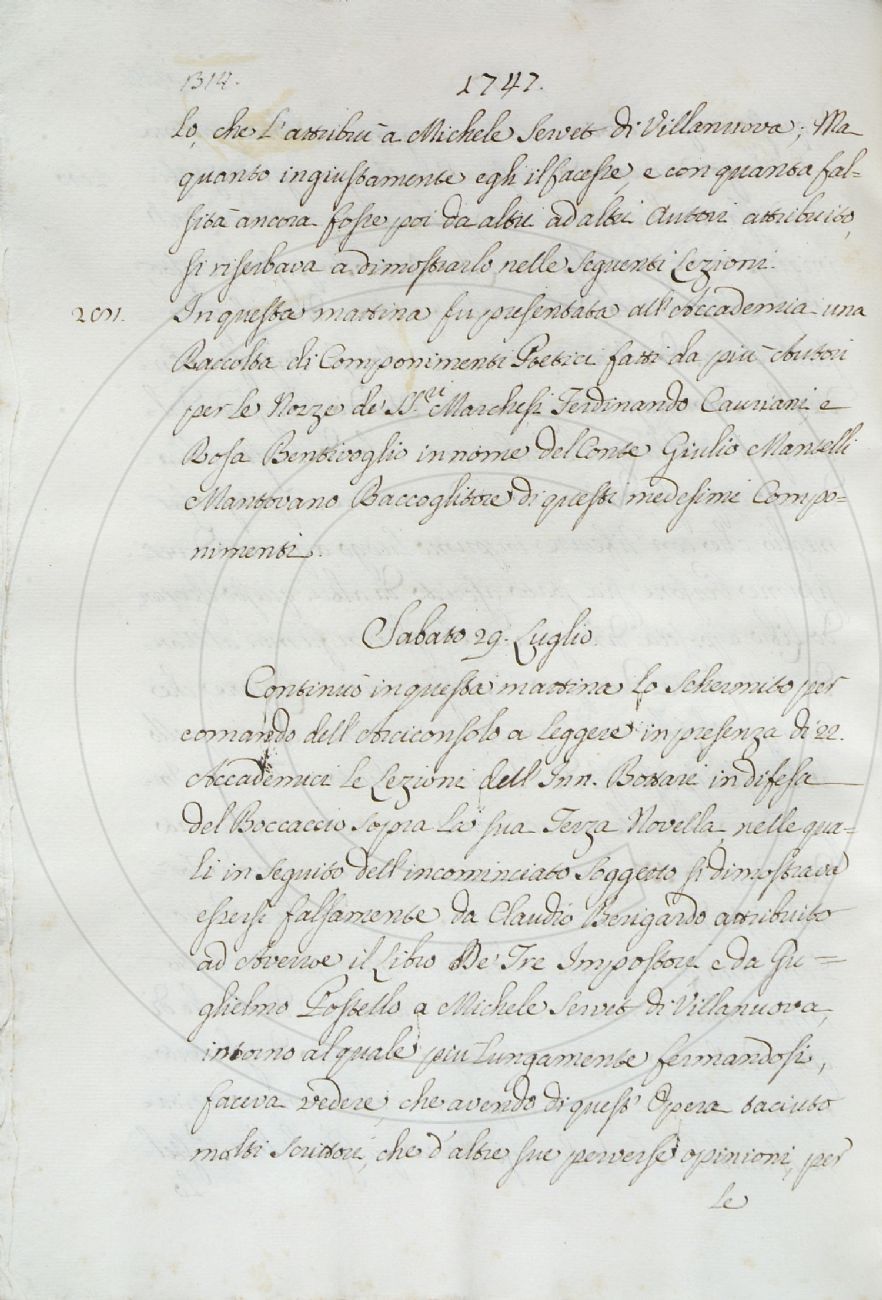 1314.
1747.
lo, che l'attribuì a Michele Servet di Villanuova; Ma
quanto ingiustamente egli il facesse, e con quanta fal=
sità ancora fosse poi da altri ad altri Autori attribuito,
si riserbava a dimostrarlo nelle seguenti Lezioni.
In questa mattina fu presentata all'Accademia una
Raccolta di Componimenti Poetici fatti da più Autori
per le Nozze de' SS.ri Marchesi Ferdinando Cauriani e
Rosa Bentivoglio in nome del Conte Giulio Mantelli
Mantovano Raccoglitore di questi medesimi Compo=
nimenti.
Sabato 29. Luglio.
Continuò in questa mattina lo Schermito per
comando dell'Arciconsolo a leggere in presenza di 22.
Accademici le Lezioni dell'Inn. Bottari in difesa
del Boccaccio sopra la sua Terza Novella, nelle qua=
li in seguito dell'incominciato soggetto si dimostrava
essersi falsamente da Claudio Berigardo attribuito
ad Averroe il Libro De' Tre Impostori e da Gu=
glielmo Postello a Michele Servet di Villanuova,
intorno al quale più lungamente fermandosi,
faceva vedere, che avendo di quest'Opera taciuto
molti scrittori, che d'altre sue perverse opinioni, per
le